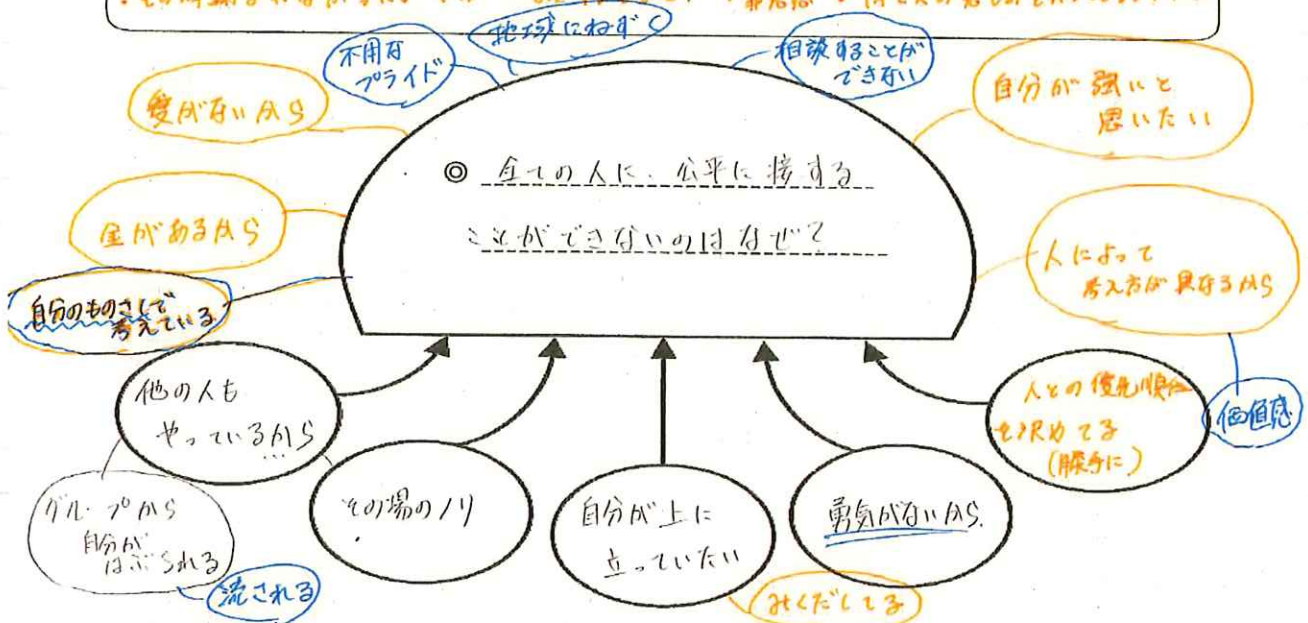 不用な
プライド
地域にねずく
相談することが
できない
愛がないから
自分が強いと
思いたい
◎ 全ての人に、公平に接する
ことができないのはなぜ?
金があるから
人によって
考え方が異なるから
自分のものさしで
考えている
他の人も
やっているから
人との優先順位
を決めてる
(勝手に)
価値感
グループから
自分が
はぶられる
その場のノリ
自分が上に
立っていたい
勇気がないから
流される
みくだしてる